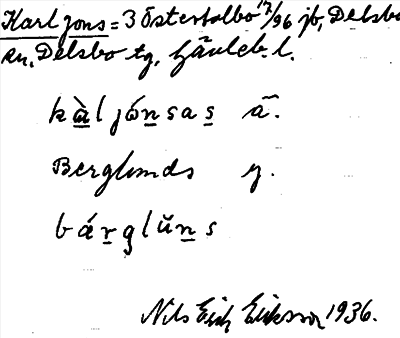 Karl Jons = 3 Österstalbo 17/96 jb, Delsbo
sn, Delsbo tg, Gävleb. l.
kàljónsas ã.
Berglunds y.
bárglŭns
Nils Erik Eriksson 1936.